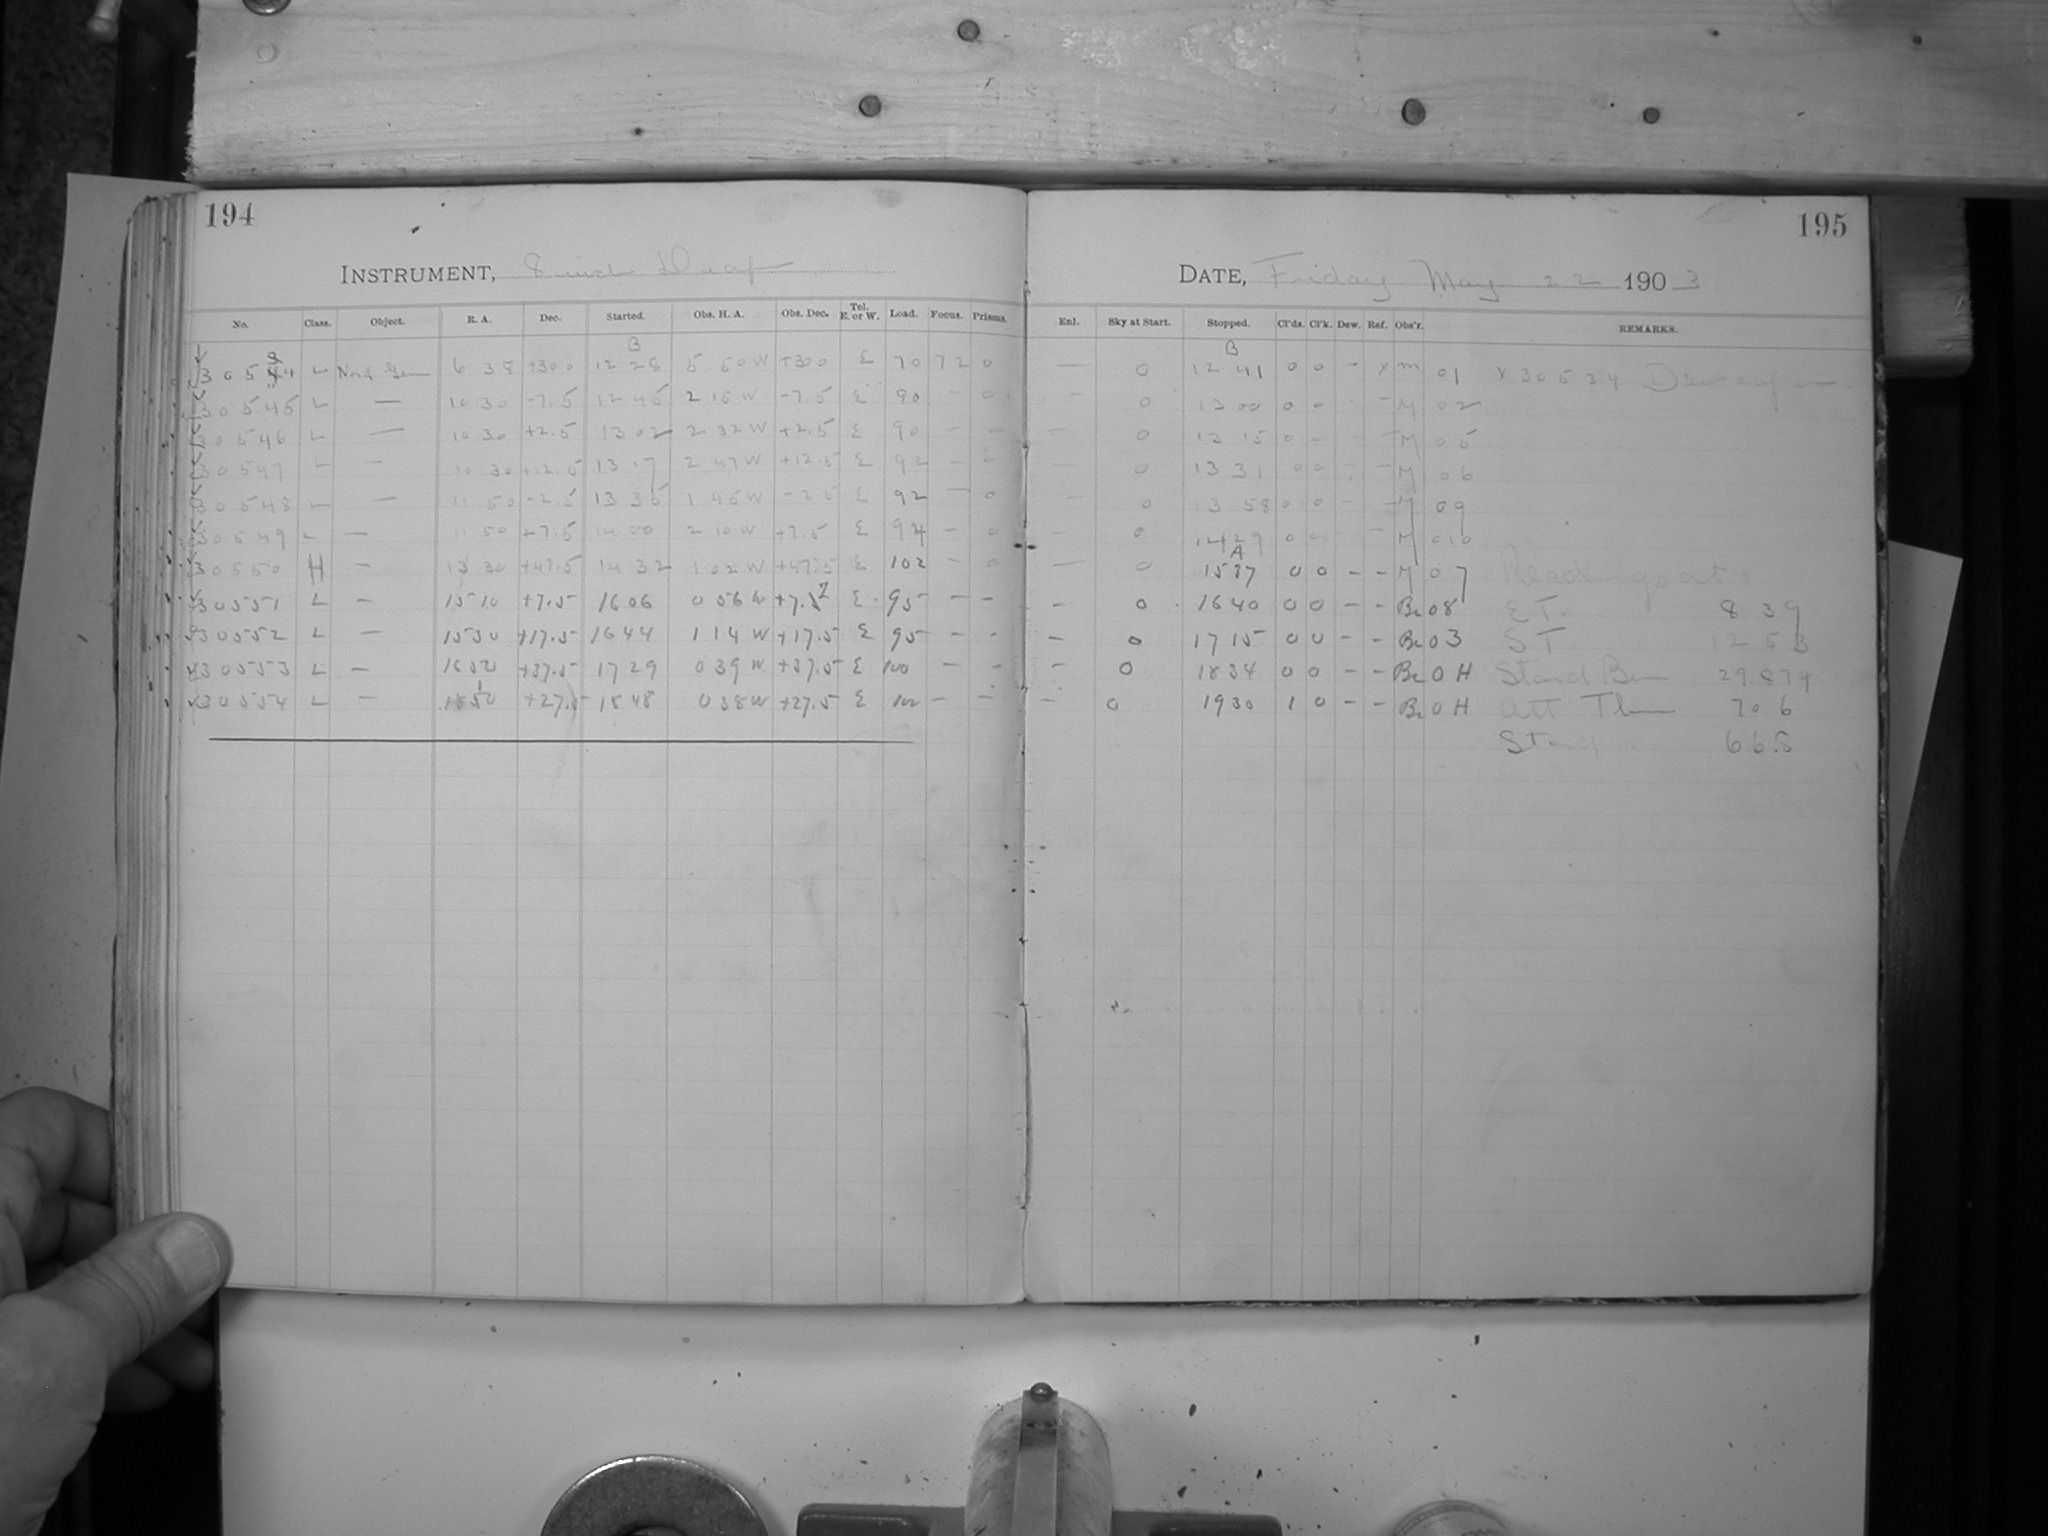 194
INSTRUMENT, 8 inch Draper
No. Class. Object. R. A. Dec. Started. Obs. H. A. Obs. Dec. Tel. E. or W. Load. Focus. Prisms.
B
30544 L Nova Gem 6 38 +30.0 12 28 5 50 W +30.0 E 70 72 0
30545 L — 10 30 -7.5 12 45 2 15 W -7.5 E 90 - 0
30546 L — 10 30 +2.5 13 02 2 32 W +2.5 E 90 - -
30547 L — 10 30 +12.5 13 17 2 47 W +12.5 E 92 -
30548 L — 11 50 -2.5 13 35 1 45 W -2.5 E 92 - 0
30549 L — 11 50 +7.5 14 00 2 10 W +7.5 E 94 - 0
30550 H — 13 30 +47.5 14 32 1 02 W +47.5 E 102 - 0
30551 L — 15 10 +7.5 16 06 0 56 W +7.5 E 95 - -
30552 L — 15 30 +17.5 16 44 1 14 W +17.5 E 95 - -
30553 L — 16 50 +37.5 17 29 0 39 W +37.5 E 100 - -
30554 L — +27.5 18 48 0 38 W +27.5 E 102 - -
195
DATE, Friday May 22 1903
Enl. Sky at Start. Stopped. Cl'ds. Cl'k. Dew. Ref. Obs'r. REMARKS.
B
— 0 12 41 0 0 - x M 01 x 30534
- 0 13 00 0 - - M 02
— 0 13 15 0 - - M 05
- 0 13 31 0 0 - M 06
- 0 13 58 0 0 - - M 09
- 0 14 29 0 0 - M 010
A
— 0 15 37 0 0 - - M 07 Readings at
- 0 16 40 0 0 - - Br 08 E T. 8 39
- 0 17 15 0 0 - - Br 03 S T 12 53
- 0 18 34 0 0 - - Br 0 H Stand Bar 29.874
- 0 19 30 1 0 - - Br 0 H Att Ther 70.6
Stand " 66.5